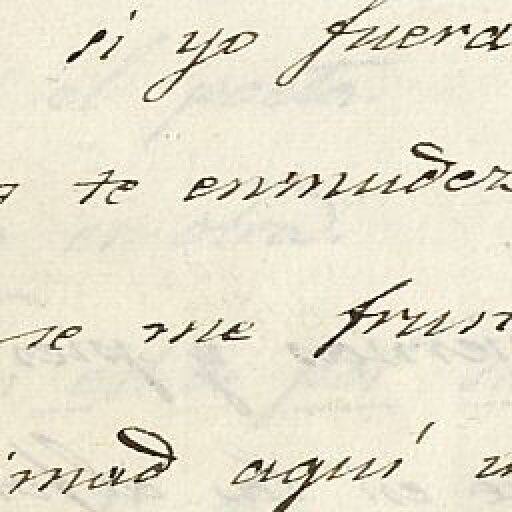 si yo fuera
te enmudez
se me frun
imad aquí